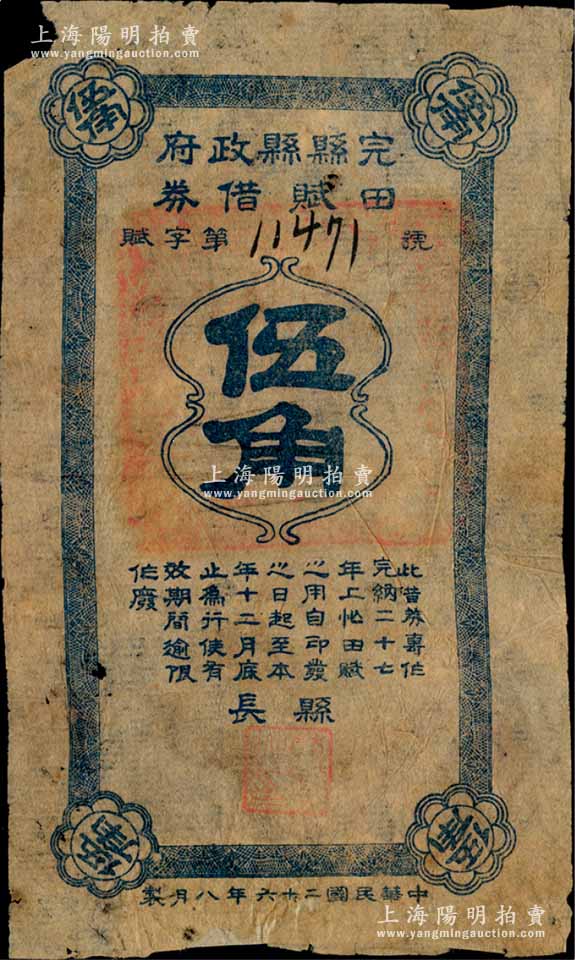 上海陽明拍賣
www.yangmingauction.com
伍角
伍角
完縣縣政府
田賦借券
賦字第11471號
伍
角
上海陽明拍賣
www.yangmingauction.com
此借券專作
完納二十七
年上忙田賦
之用自印發
之日起至本
年十二月底
止為行使有
效期間逾限
作廢
縣長
伍角
伍角
中華民國二十六年八月製
上海陽明拍賣
www.yangmingauction.com